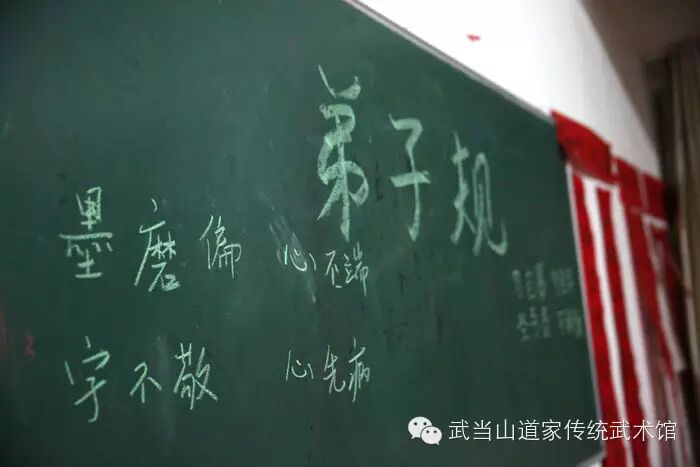 弟子规
墨磨偏 心不端
字不敬 心先病
武当山道家传统武术馆